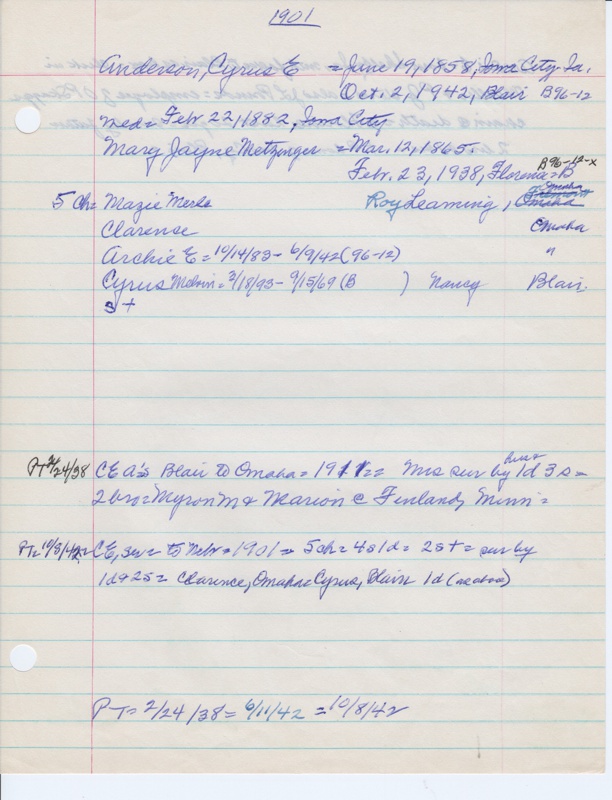 1901
Anderson, Cyrus E = June 19, 1858, Iowa City Ia.
Oct. 2, 1942, Blair B96-12
med = Feb. 22, 1882, Iowa City
Mary Jayne Metzinger = Mar. 12, 1865.
B96-12-x
Feb. 23, 1938, Florence = B
5 ch = Mazie Merle Roy Leaming, Omaha
Clarence Omaha
Archie E = 10/14/83 - 6/9/42 (96-12) "
Cyrus Melvin = 2/18/93 - 9/15/69 (B ) Nancy Blair.
s +
PT 2/24/38 CEA's Blair to Omaha = 1911 = Mrs sur by husb 1d 3s =
2 bro = Myron M & Marion C Finland, Minn =
PT = 10/8/42 = CE, = to Nebr = 1901 = 5 ch = 4s 1d = 2s + = sur by
1d & 2s = Clarence, Omaha = Cyrus, Blair 1d (as above)
PT = 2/24/38 = 6/11/42 = 10/8/42